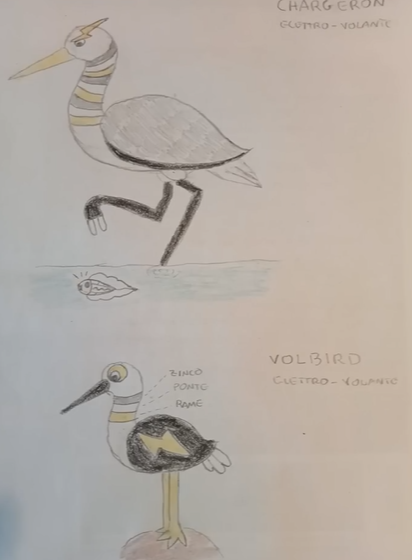 CHARGERON
ELETTRO-VOLANTE
VOLBIRD
ELETTRO-VOLANTE
ZINCO
PONTE
RAME